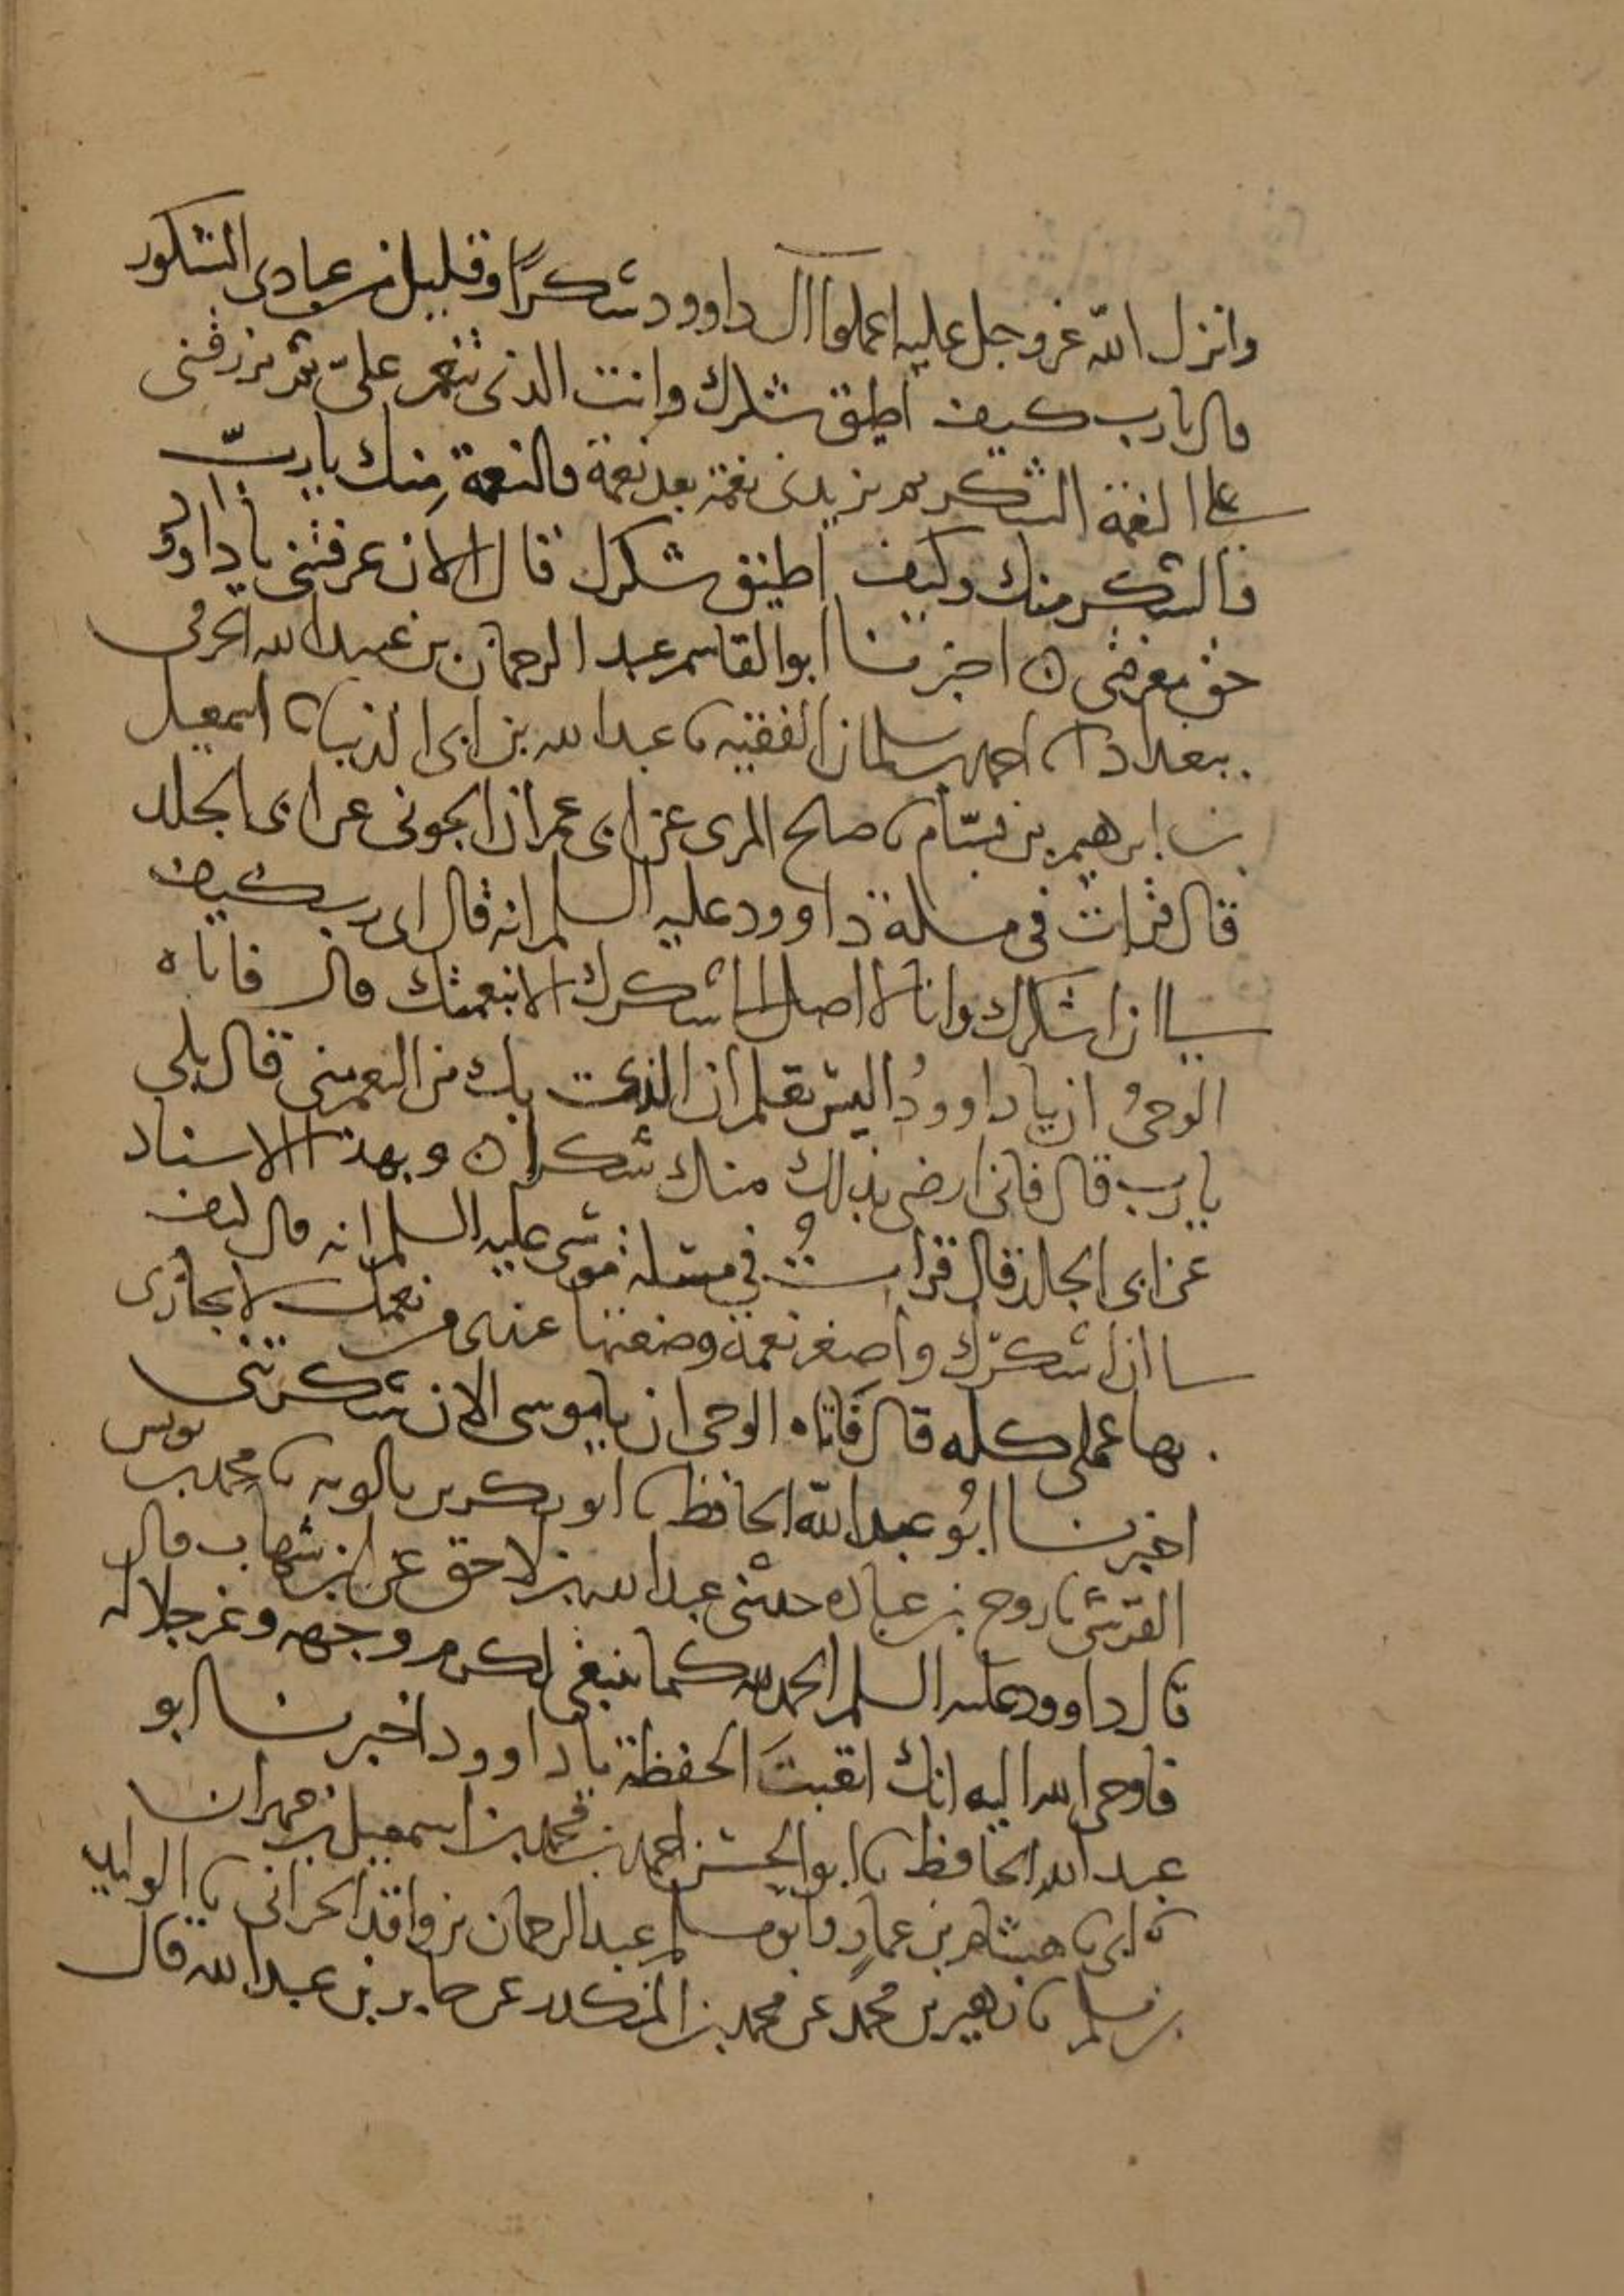 وانزل الله عز وجل عليه اعملوا ال داوود شكرًا وقليل من عبادى الشكور
قال يا رب كيف اطيق شكرك وانت الذى تنعم علىّ ثم ترزقنى
على النعمة الشكر ثم تزيدنى نعمة بعد نعمة فالنعمة مِنك يا ربّ
فالشكر منك وكيف اطيق شكرك قال الان عرفتنى يا داود
حق معرفتى ه اخبرنا ابو القاسم عبد الرحمان بن عبيد الله الحرفى
ببغداد نا احمد بن سلمان الفقيه نا عبد الله بن ابى الدنيا نا اسمعيل
بن ابرهيم بن بسّام نا صلح المرى عن ابى عمران الجونى عن ابى الجلد
قال قرات فى مسلة داوود عليه السلم انه قال اى رب كيف
لى ان اشكرك وانا لا اصل الى شكرك الا بنعمتك قال فاتاه
الوحىُ ان يا داوودُ اليس تعلم ان الذى بك من النعم منى قال بلى
يا رب قال فانى ارضى بذلك منك شكرا ه وبهذا الاسناد
عن ابى الجلد قال قراتُ فى مسلة موسى عليه السلم انه قال كيف
لى ان اشكرك واصغر نعمة وضعتها عندى من نعمك لا يجازى
بها عملى كله قال فاتاه الوحى ان يا موسى الان شكرتنى
اخبرنا ابُو عبد الله الحافظ نا ابو بكر بن بالويه نا محمد بن يونس
القرشى نا روح بن عباده حدثنى عبد الله بن لاحق عن ابن شهاب قال
قال داوود عليه السلم الحمد لله كما ينبغى لكرم وجهه وعز جلاله
فاوحى الله اليه انك اتعبتَ الحفظة يا داوود اخبرنا ابو
عبد الله الحافظ نا ابو الحسن احمد بن محمد بن اسمعيل بن مهران
نا ابى نا هشام بن عمارٍ وابو مسلم عبد الرحمان بن واقد الحرانى نا الوليد
بن مسلم نا زهير بن محمد عن محمد بن المنكدر عن جابر بن عبد الله قال